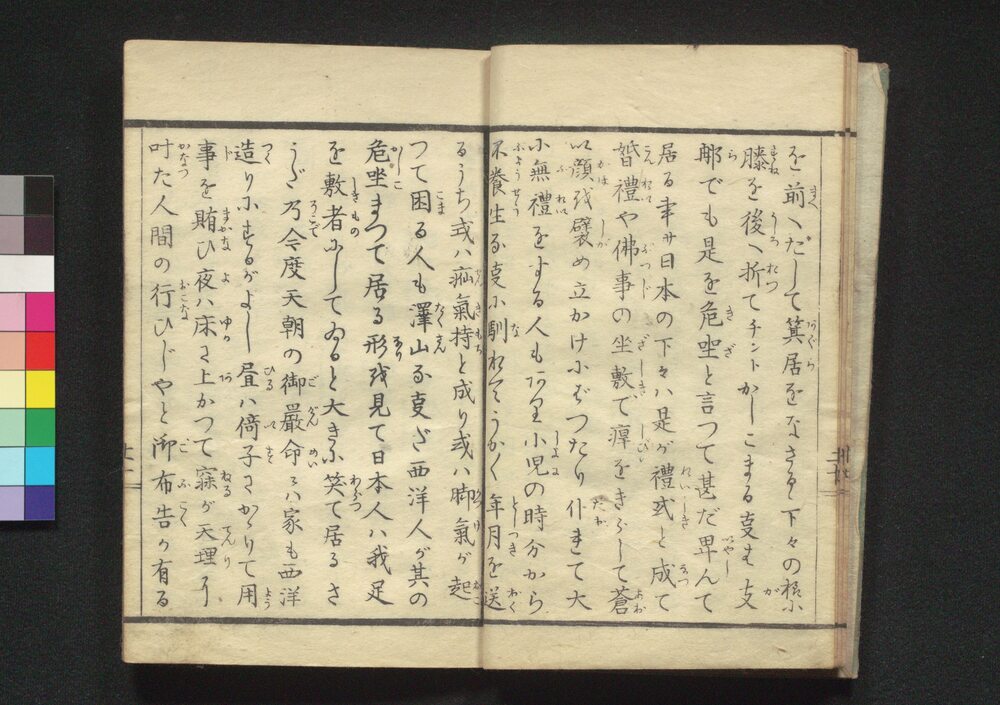 を前へだして箕居をなさるゝ下々の様に
膝を後へ折てチントかしこまる事は支
那でも是を危坐と言つて甚だ畢んて
居る事サ日本の下々ハ是が禮式と成て
婚禮や佛事の坐敷で痺をきらして蒼
い顔を襞め立かけにばつたり仆れて大
に無禮をする人もあり小児の時分から
不養生な事に馴れてうか〱年月を送
るうち或ハ疝氣持と成り或ハ脚氣が起
つて困る人も澤山な事ざ西洋人が其の
危坐まつて居る形を見て日本人ハ我足
を敷者にして ゐると大きに笑て居るさ
うだ乃今度天朝の御嚴命にハ家も西洋
造りにするがよし昼ハ倚子にかゝりて用
事を賄ひ夜ハ床に上かつて寐が天理に
叶た人間の行ひじやと御布告が有る